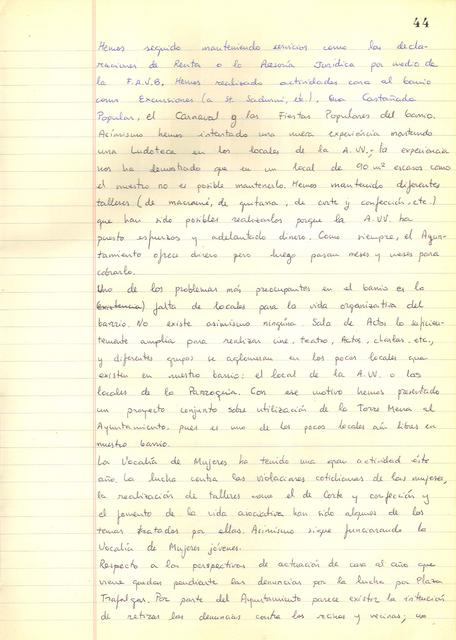 44
Hemos seguido manteniendo servicios como las decla-
raciones de Renta o la Asesoría Jurídica por medio de
la F.A.V.B. Hemos realizado actividades cara al barrio
como Excursiones (a St. Sadurní, etc.), Una Castañada
Popular, el Carnaval y las Fiestas Populares del barrio.
Asimismo hemos intentado una nueva experiencia montando
una Ludoteca en los locales de la A.VV.; la experiencia
nos ha demostrado que en un local de 90 m² escasos como
el nuestro no es posible mantenerlo. Hemos mantenido diferentes
talleres (de macramé, de guitarra, de corte y confección, etc.)
que han sido posibles realizarlos porque la A.VV. ha
puesto esfuerzos y adelantado dinero. Como siempre, el Ayun-
tamiento ofrece dinero pero luego pasan meses y meses para
cobrarlo.
Uno de los problemas más preocupantes en el barrio es la
(existencia) falta de locales para la vida organizativa del
barrio. No existe asimismo ninguna Sala de Actos lo suficien-
temente amplia para realizar cine, teatro, Actos, charlas, etc.,
y diferentes grupos se aglomeran en los pocos locales que
existen en nuestro barrio: el local de la A.VV. o los
locales de la Parroquia. Con ese motivo hemos presentado
un proyecto conjunto sobre utilización de la Torre Mena al
Ayuntamiento, pues es uno de los pocos locales aún libres en
nuestro barrio.
La Vocalía de Mujeres ha tenido una gran actividad éste
año. La lucha contra las violaciones cotidianas de las mujeres,
la realización de talleres como el de Corte y confección y
el fomento de la vida asociativa han sido algunos de los
temas tratados por ellas. Asimismo sigue funcionando la
Vocalía de Mujeres jóvenes.
Respecto a las perspectivas de actuación de cara al año que
viene quedan pendiente las denuncias por la lucha por Plaza
Trafalgar. Por parte del Ayuntamiento parece existir la intención
de retirar las denuncias contra los vecinos y vecinas, un